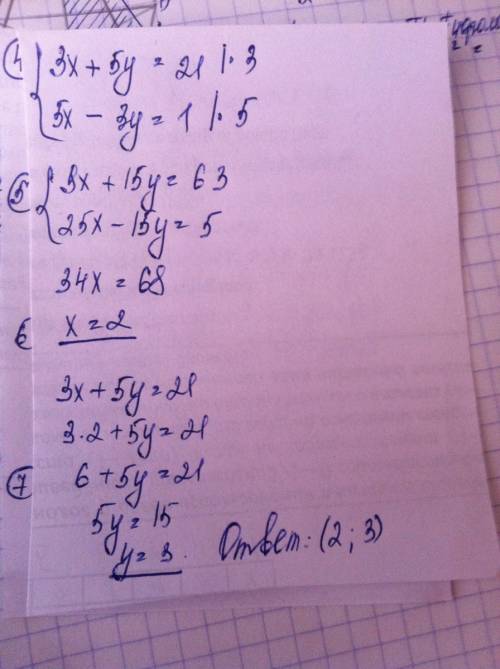 4) { 3x + 5y = 21 | · 3
5x - 3y = 1 | · 5
5) { 9x + 15y = 63
25x - 15y = 5
34x = 68
6) x = 2
3x + 5y = 21
3 · 2 + 5y = 21
7) 6 + 5y = 21
5y = 15
y = 3. Ответ: (2; 3)